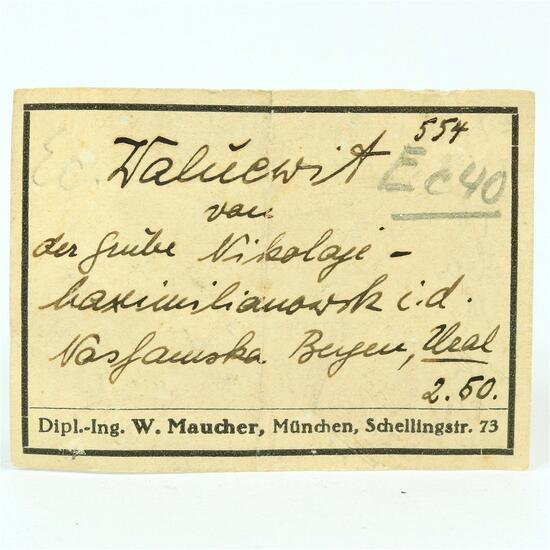 554
Waluewit Ec40
Ec.
von
der Grube Nikolaje-
Maximilianowsk i.d.
Nasjamska Bergen, Ural
2.50.
Dipl.-Ing. W. Maucher, München, Schellingstr. 73